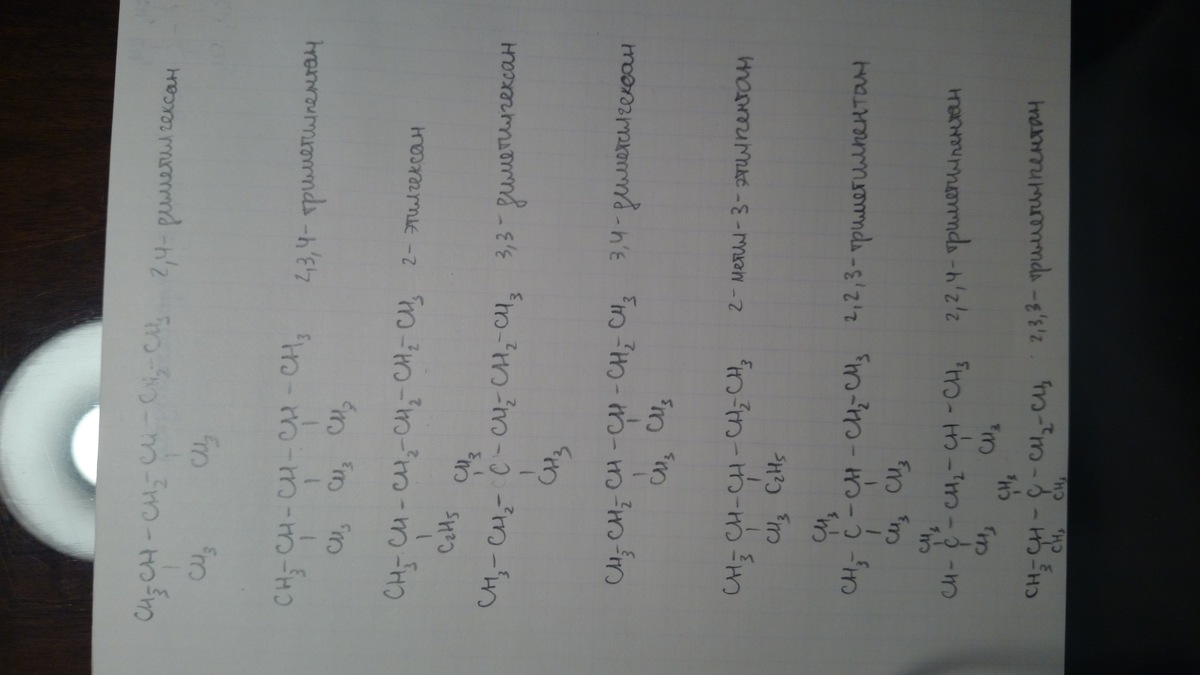 CH₃-CH-CH₂-CH-CH₂-CH₃ 2,4-диметилгексан
CH₃ CH₃
CH₃-CH-CH-CH-CH₃ 2,3,4-триметилпентан
CH₃ CH₃ CH₃
CH₃-CH-CH₂-CH₂-CH₂-CH₃ 2-этилгексан
C₂H₅
CH₃
CH₃-CH₂-C-CH₂-CH₂-CH₃ 3,3-диметилгексан
CH₃
CH₃-CH₂-CH-CH-CH₂-CH₃ 3,4-диметилгексан
CH₃ CH₃
CH₃-CH-CH-CH₂-CH₃ 2-метил-3-этилпентан
CH₃ C₂H₅
CH₃
CH₃-C-CH-CH₂-CH₃ 2,2,3-триметилпентан
CH₃ CH₃
CH₃
CH-C-CH₂-CH-CH₃ 2,2,4-триметилпентан
CH₃ CH₃
CH₃
CH₃-CH-C-CH₂-CH₃ 2,3,3-триметилпентан
CH₃ CH₃